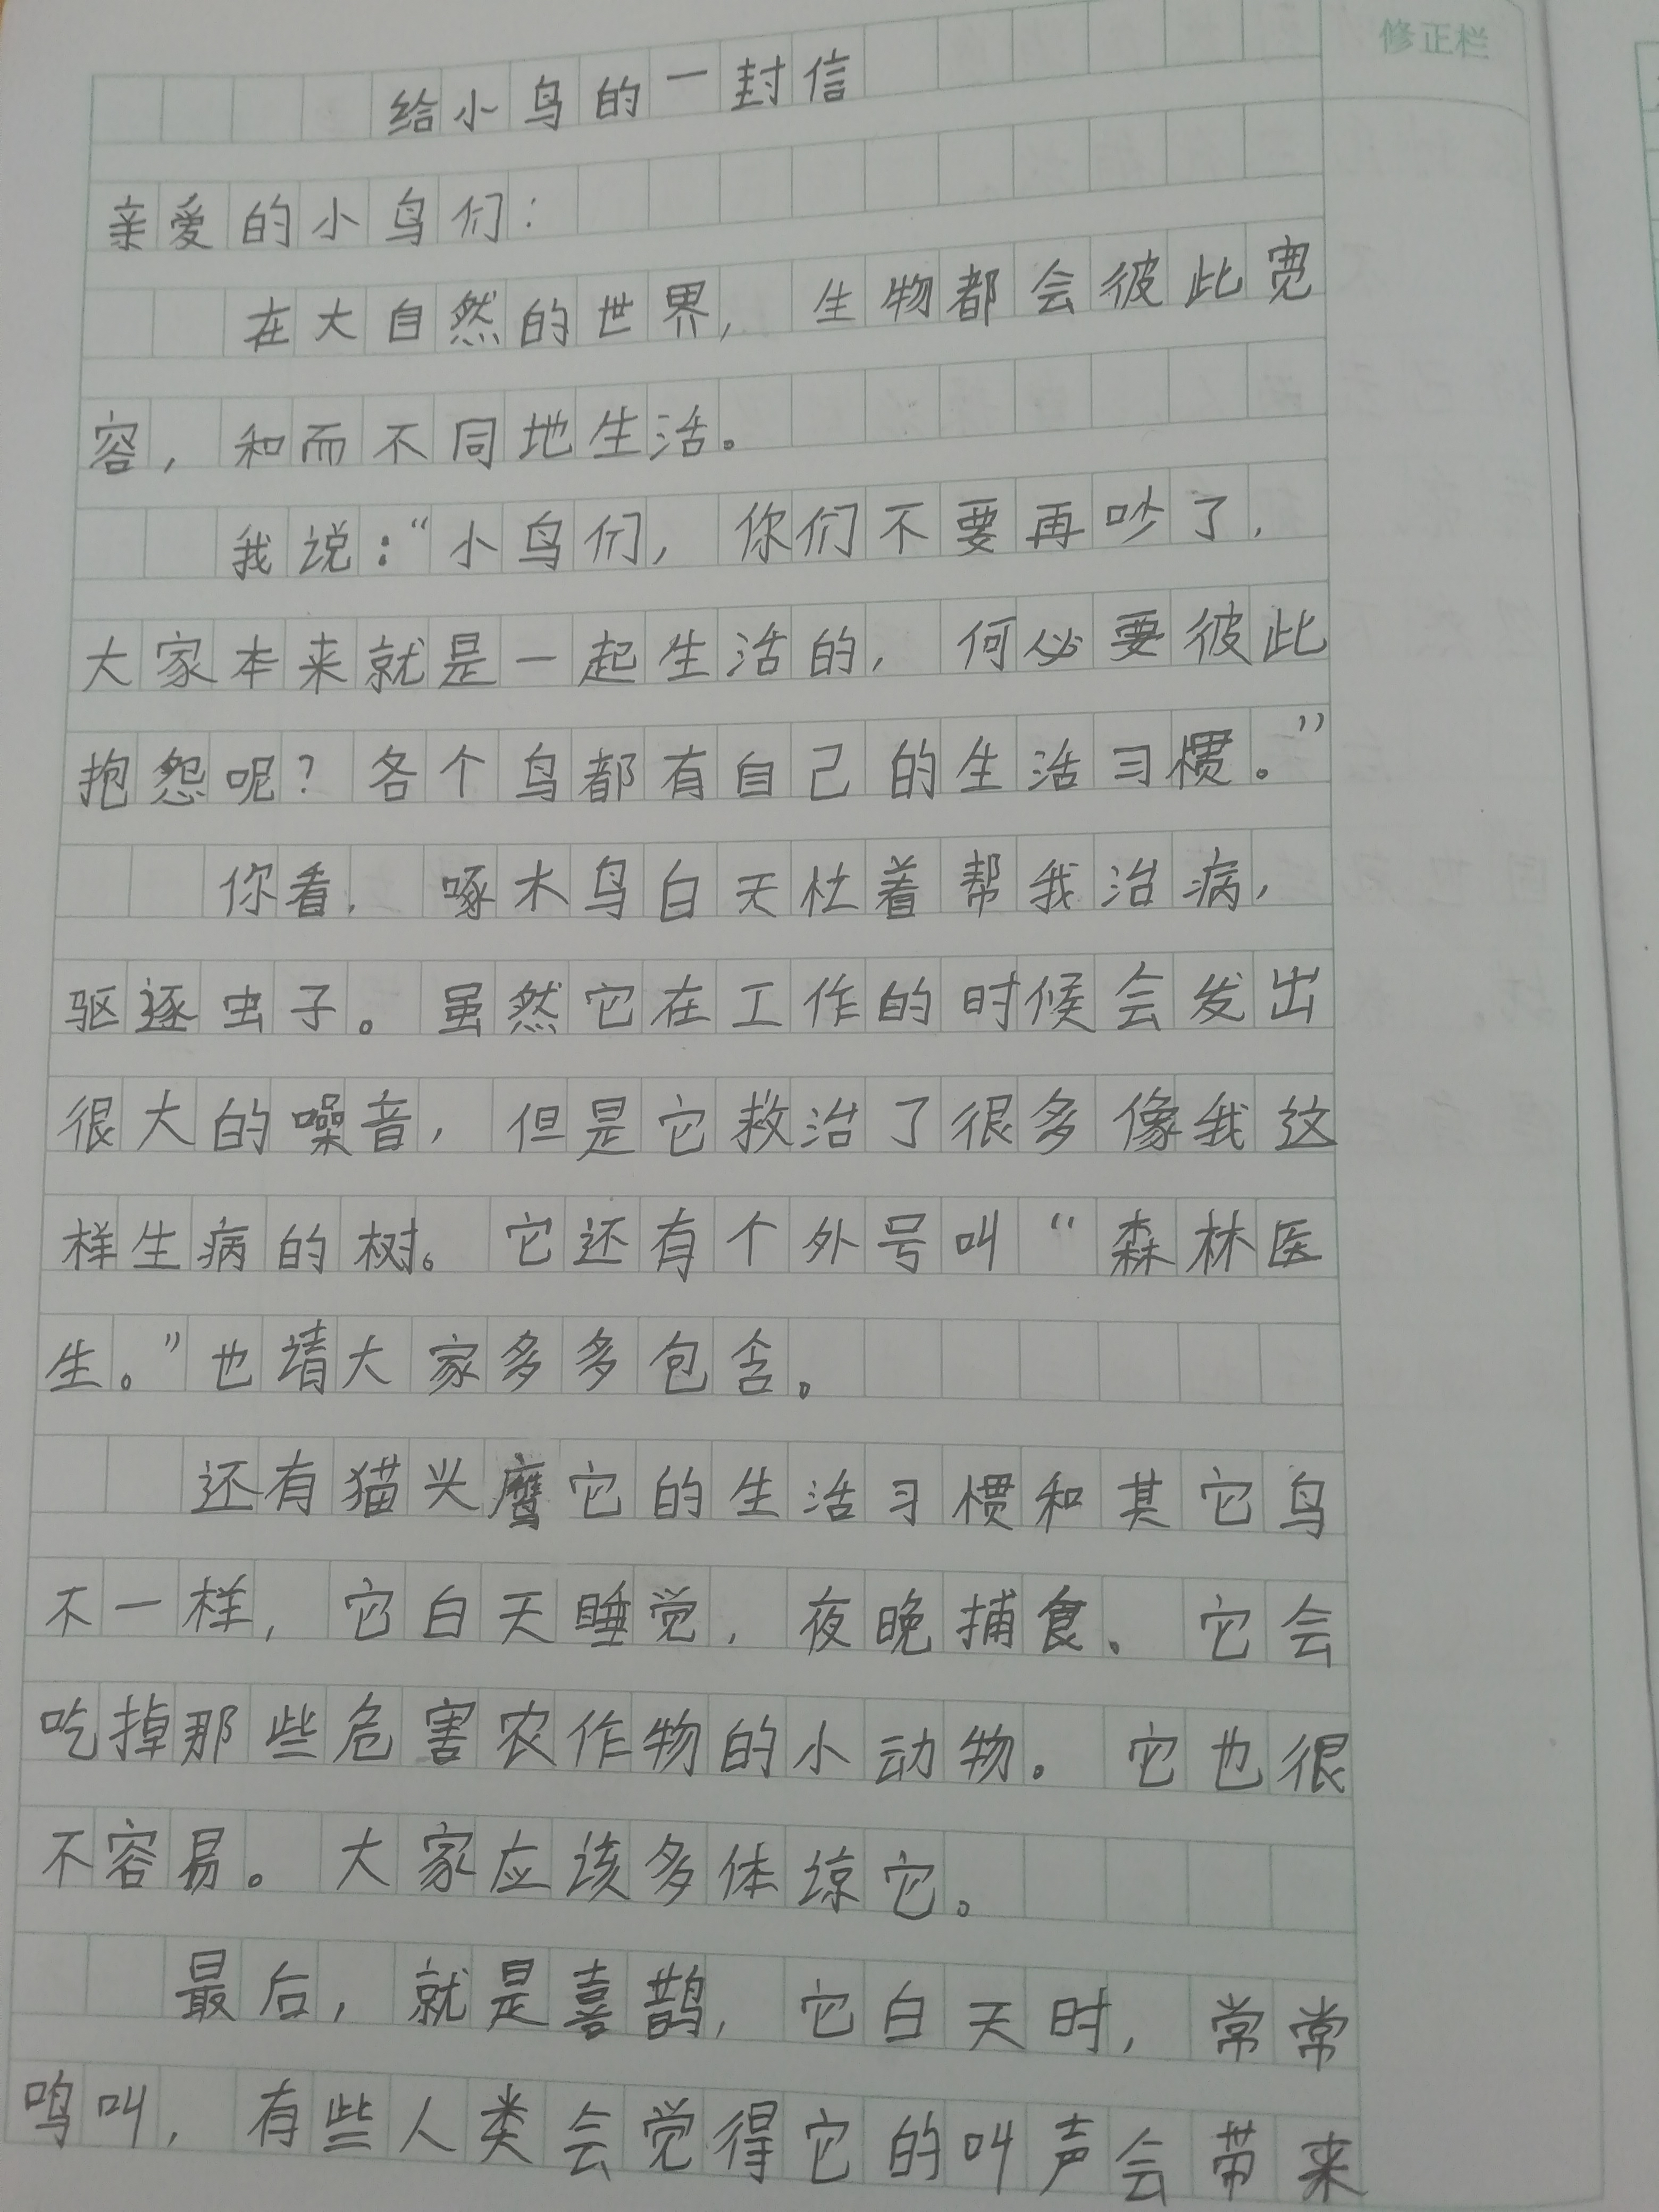 修正栏
给小鸟的一封信
亲爱的小鸟们：
在大自然的世界，生物都会彼此宽
容，和而不同地生活。
我说：“小鸟们，你们不要再吵了，
大家本来就是一起生活的，何必要彼此
抱怨呢？各个鸟都有自己的生活习惯。”
你看，啄木鸟白天杜着帮我治病，
驱逐虫子。虽然它在工作的时候会发出
很大的噪音，但是它救治了很多像我这
样生病的树。它还有个外号叫“森林医
生。”也请大家多多包含。
还有猫头鹰它的生活习惯和其它鸟
不一样，它白天睡觉，夜晚捕食、它会
吃掉那些危害农作物的小动物。它也很
不容易。大家应该多体谅它。
最后，就是喜鹊，它白天时，常常
鸣叫，有些人类会觉得它的叫声会带来